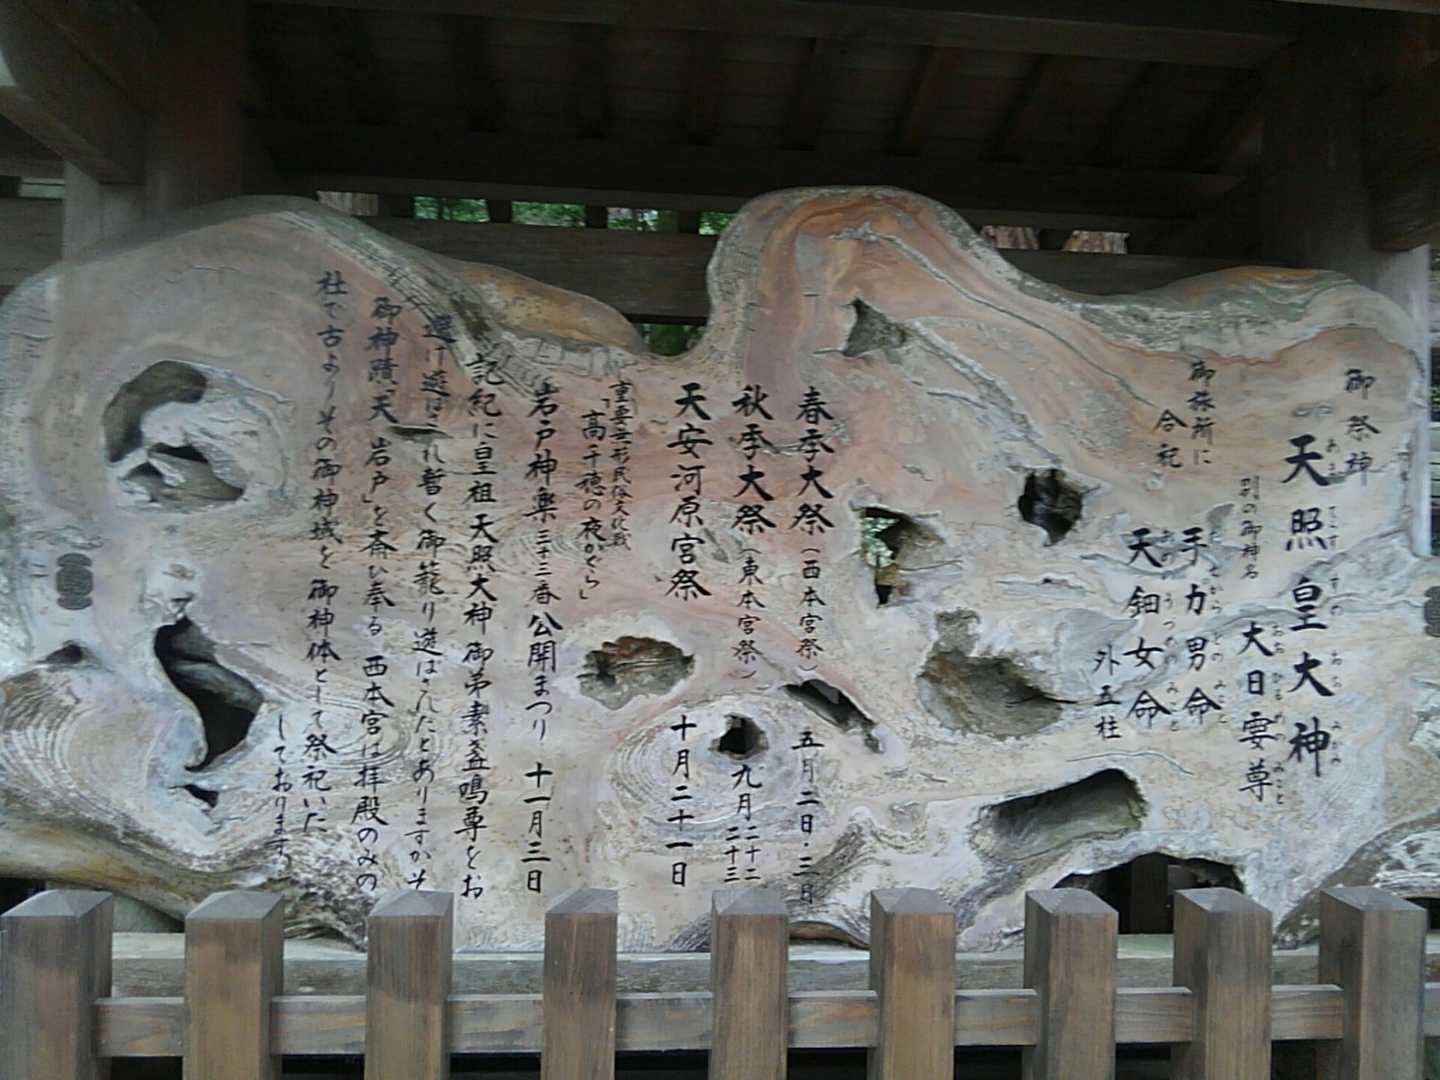 御祭神
天照皇大神
あまてらすすめおおみかみ
別の御神名
大日孁尊
おおひるめのみこと
御旅所に
合祀
手力男命
たぢからをのみこと
天鈿女命
あめのうづめのみこと
外五柱
春季大祭（西本宮祭）五月二日・三日
秋季大祭（東本宮祭）九月二十二
二十三
天安河原宮祭 十月二十一日
重要無形民俗文化財
「高千穂の夜かぐら」
岩戸神楽三十三番公開まつり 十一月三日
記紀に皇祖天照大神御弟素盞鳴尊をお
避け遊ばされ暫く御籠り遊ばされたとありますがそ
御神蹟「天岩戸」を斎ひ奉る西本宮は拝殿のみの
社で古よりその御神域を御神体として祭祀いた
しております